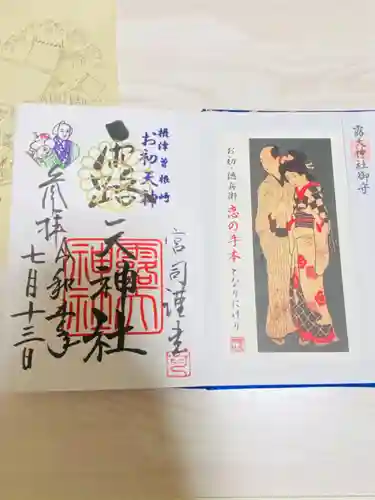 摂津曽根崎
お初天神
露天神社
参拝
令和五年
七月十三日
宮司謹書
露天神社
露天神社御守
お初・徳兵衛 恋の手本となりにけり